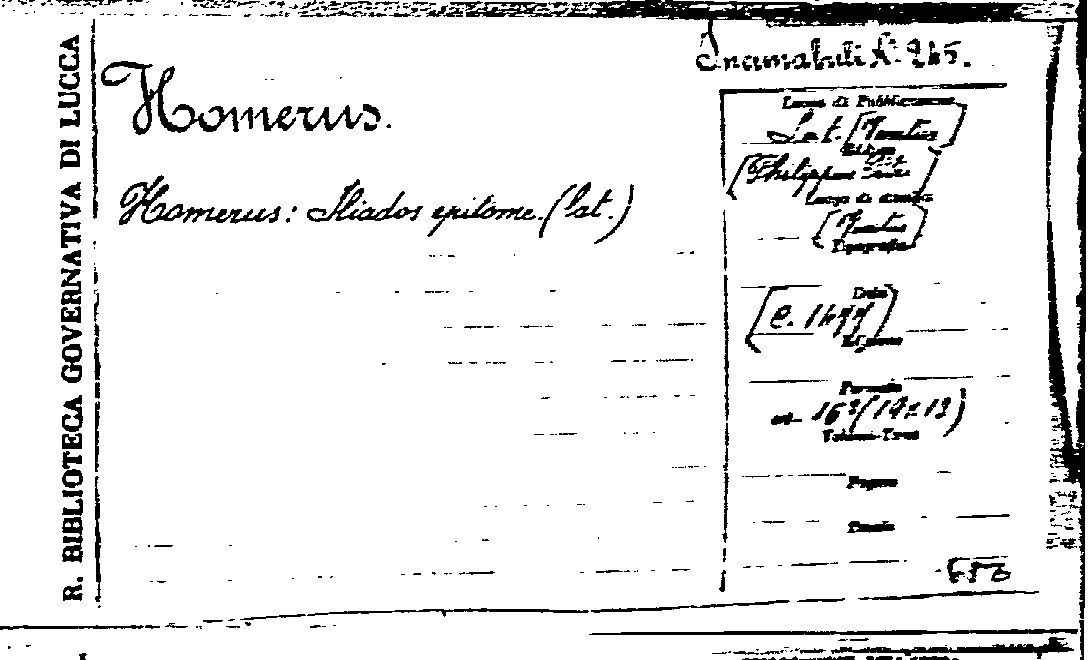 R. BIBLIOTECA GOVERNATIVA DI LUCCA
Incunabuli N. 245.
Homerus.
Homerus: Iliados epitome. (lat.)
Luogo di Pubblicazione
Lat. [Venetiis]
Editore
[Philippus
Luogo di stampa
[Venetiis]
Tipografia
Data
[c. 1477]
Edizione
Formato
16º (19x13)
Volume-Tomo
Pagine
Tavole